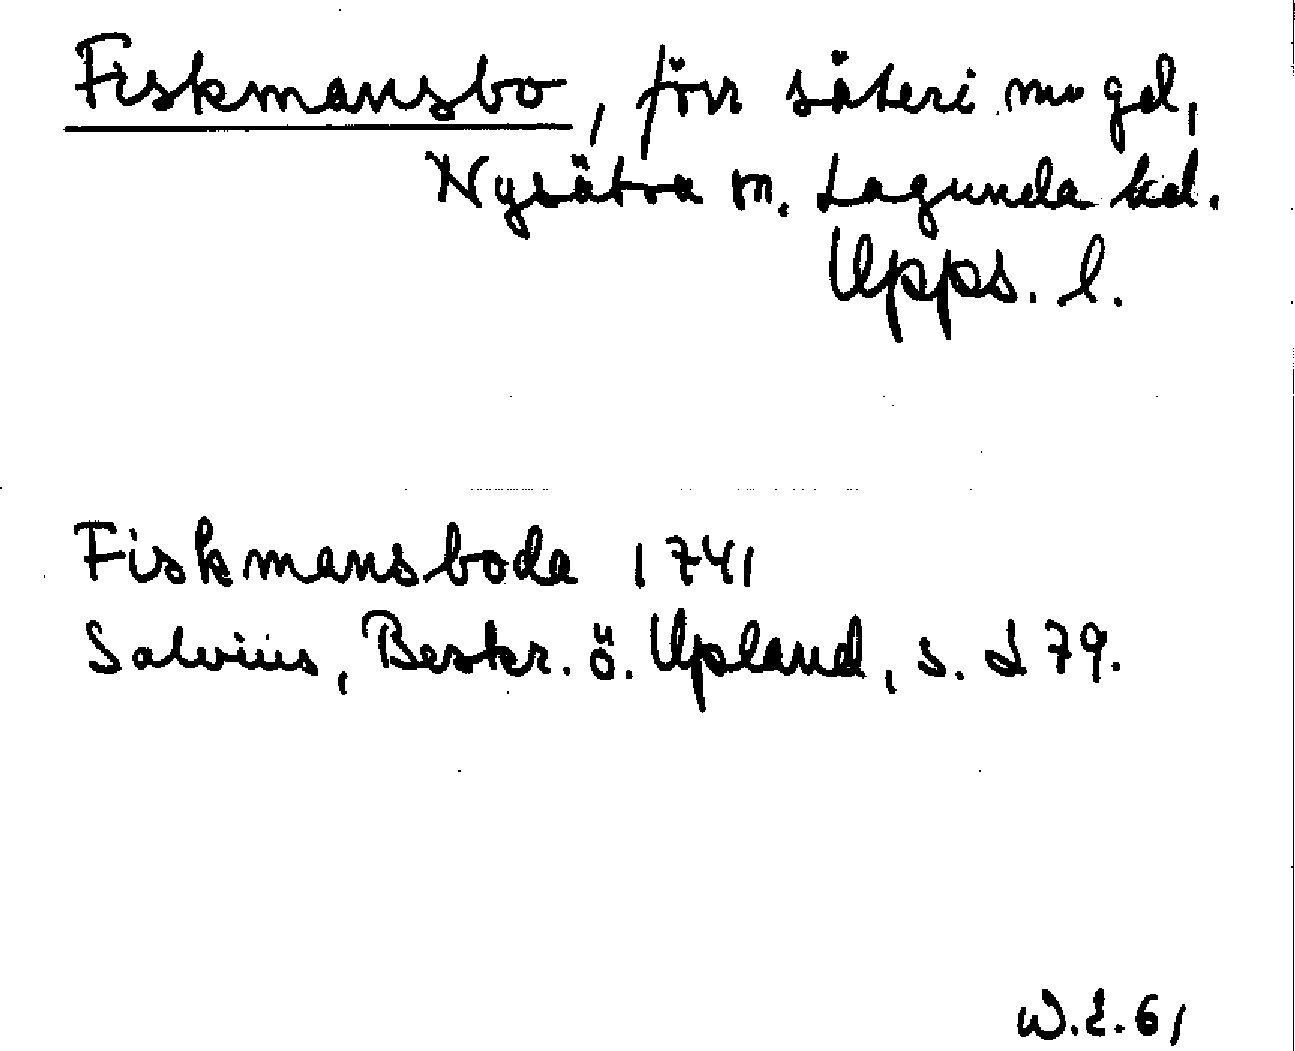 Fiskmansbo, förr säteri nu gd,
Nysätra sn. Lagunda hd.
Upps. l.
Fiskmansboda 1741
Salvius, Beskr. ö. Upland, s. 279.
W.E. 61